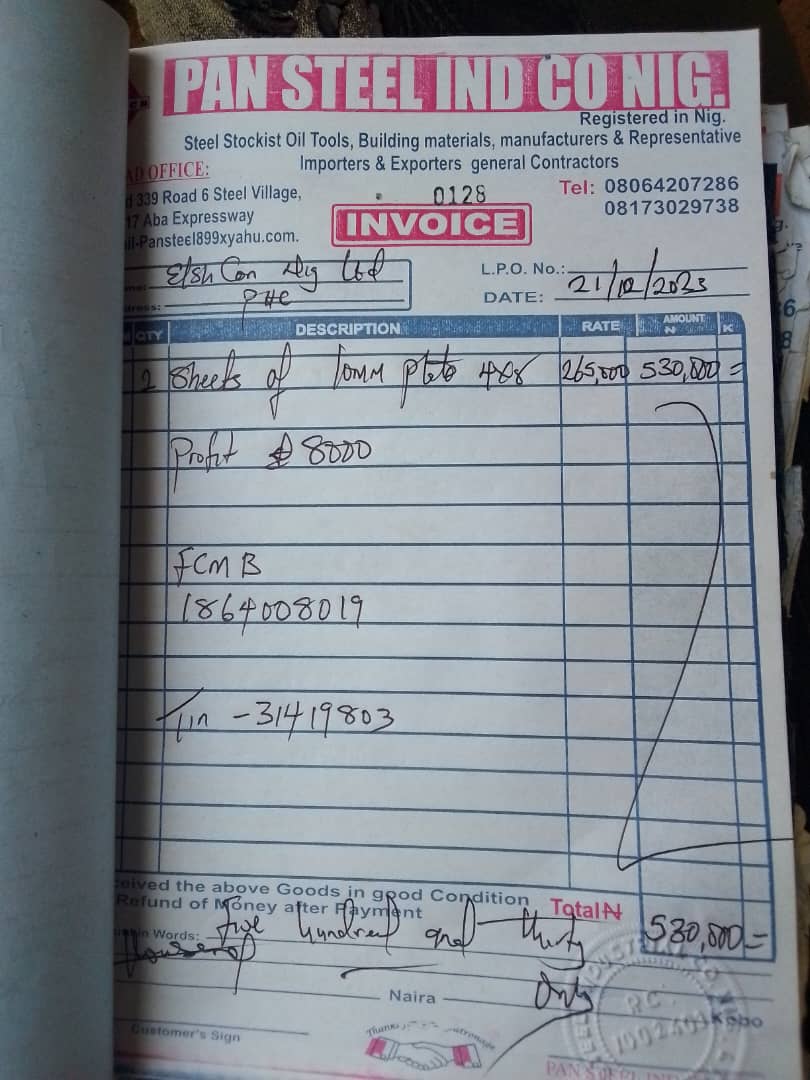 PAN STEEL IND CO NIG.
Registered in Nig.
Steel Stockist Oil Tools, Building materials, manufacturers & Representative
Importers & Exporters general Contractors
AD OFFICE:
339 Road 6 Steel Village,
17 Aba Expressway
il-Pansteel899xyahu.com.
Tel: 08064207286
08173029738
0128
INVOICE
Nig Ltd
PHC
L.P.O. No.:
DATE: 21/12/2023
QTY DESCRIPTION RATE AMOUNT
₦ K
2 Sheets of 10mm plate 4x8 265,000 530,000=
Profit 8000
FCMB
1864008019
Tin -31419803
eived the above Goods in good Condition
Refund of Money after Payment
Total ₦ 530,000=
in Words: Five hundred and thirty
thousand
Only
Naira
Kobo
Customer's Sign
Thanks
PAN STEEL IND
RC